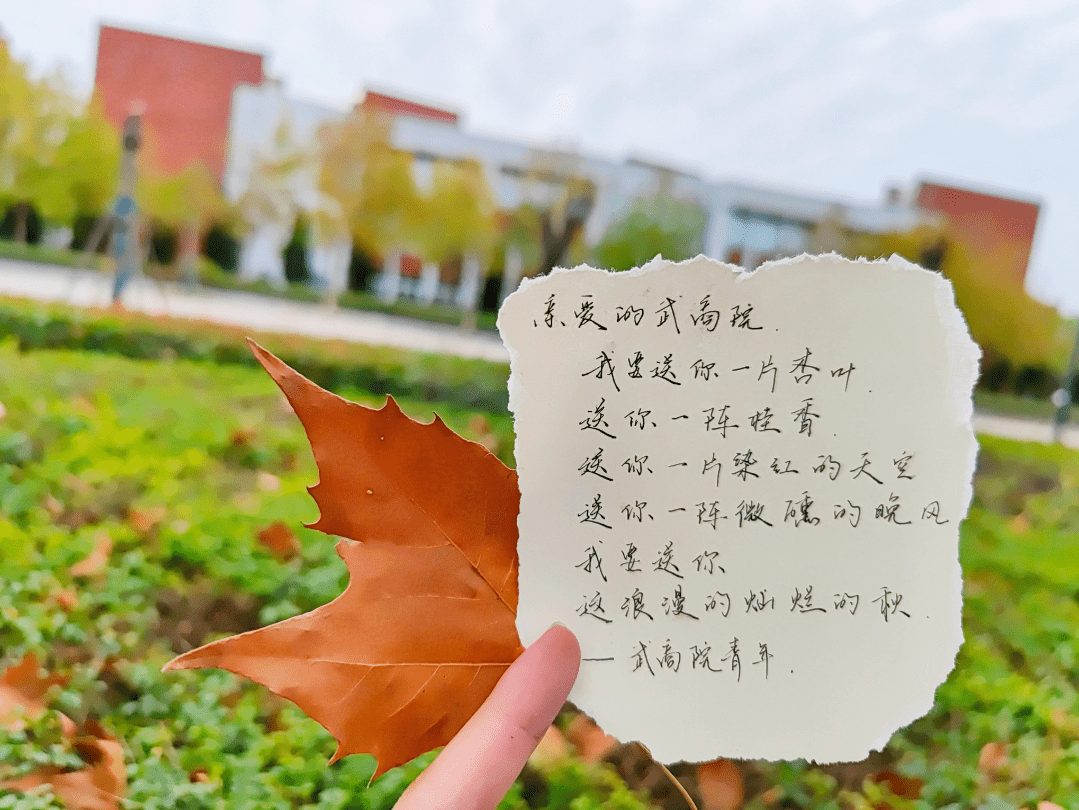 亲爱的武高院.
我要送你一片杏叶.
送你一阵桂香.
送你一片染红的天空
送你一阵微醺的晚风
我要送你
这浪漫的灿烂的秋.
— 武高院青年.